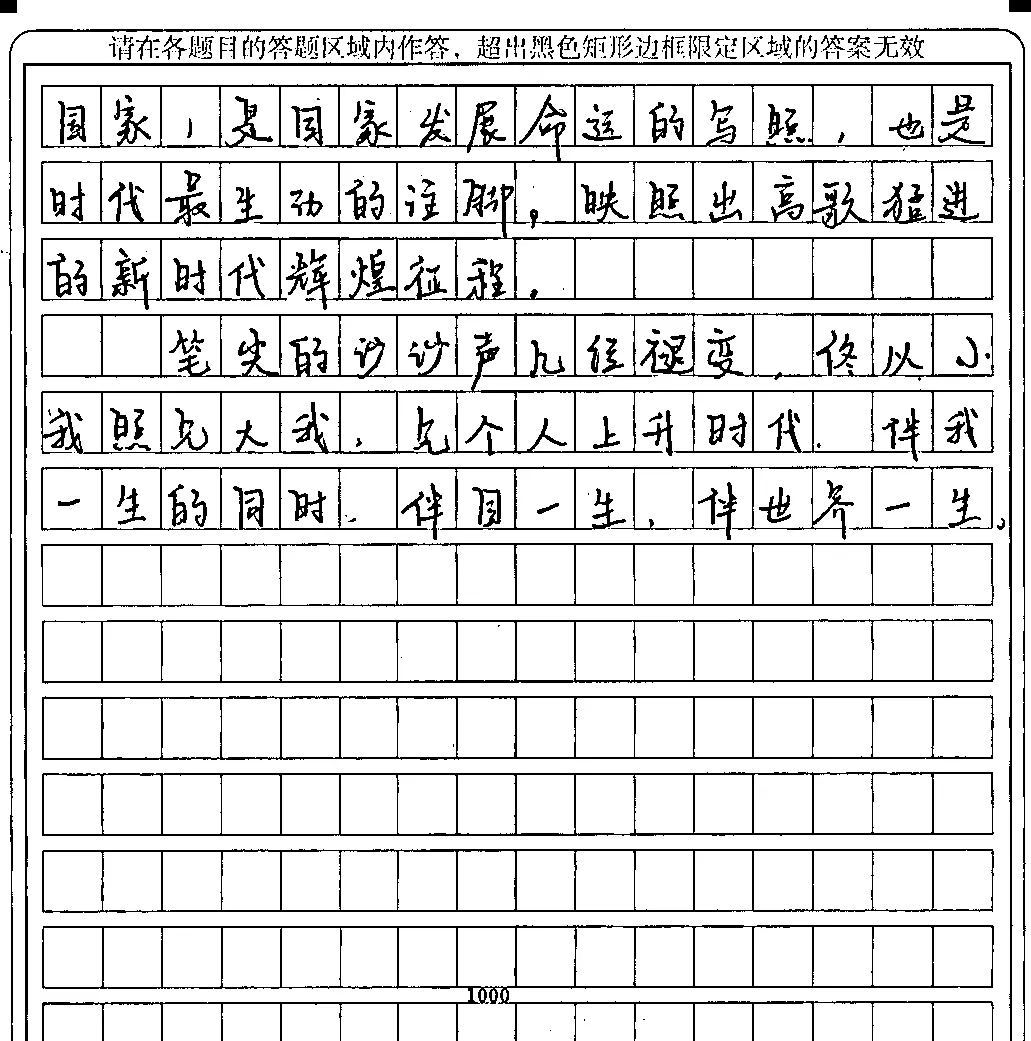 请在各题目的答题区域内作答，超出黑色矩形边框限定区域的答案无效
国家，是国家发展命运的写照，也是
时代最生动的注脚，映照出高歌猛进
的新时代辉煌征程。
笔尖的沙沙声几经褪变，终从小
我照见大我，见个人上升时代．伴我
一生的同时．伴国一生，伴世界一生。
1000